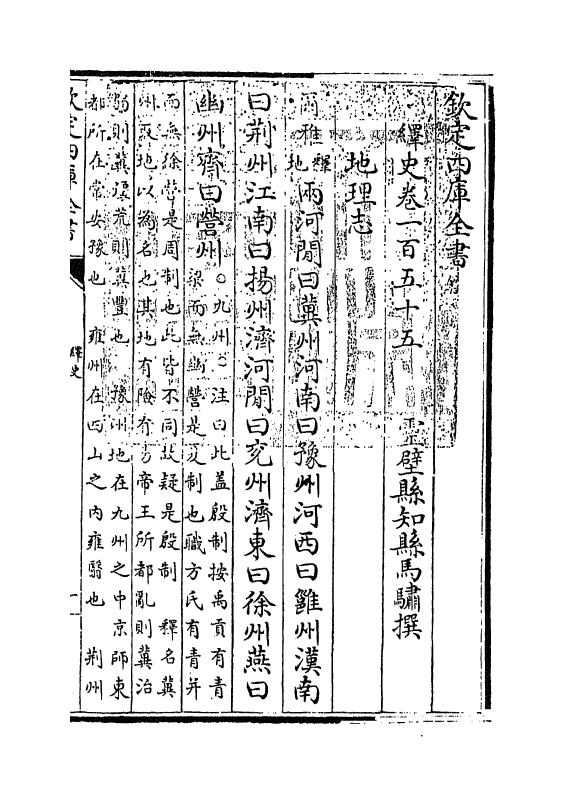 欽定四庫全書
繹史卷一百五十五
靈壁縣知縣馬驌撰
地理志
爾雅釋地兩河間曰冀州河南曰豫州河西曰雝州漢南
曰荆州江南曰揚州濟河間曰兖州濟東曰徐州燕曰
幽州齊曰營州
○九州○注曰此盖殷制按禹貢有青
梁而無幽營是夏制也職方氏有青并
而無徐營是周制也此皆不同故疑是殷制 釋名冀
州取地以為名也其地有險有易帝王所都亂則冀治
弱則冀彊荒則冀豐也 豫州地在九州之中京師東
都所在常安豫也 雍州在四山之内雍翳也 荆州
欽定四庫全書
繹史
一